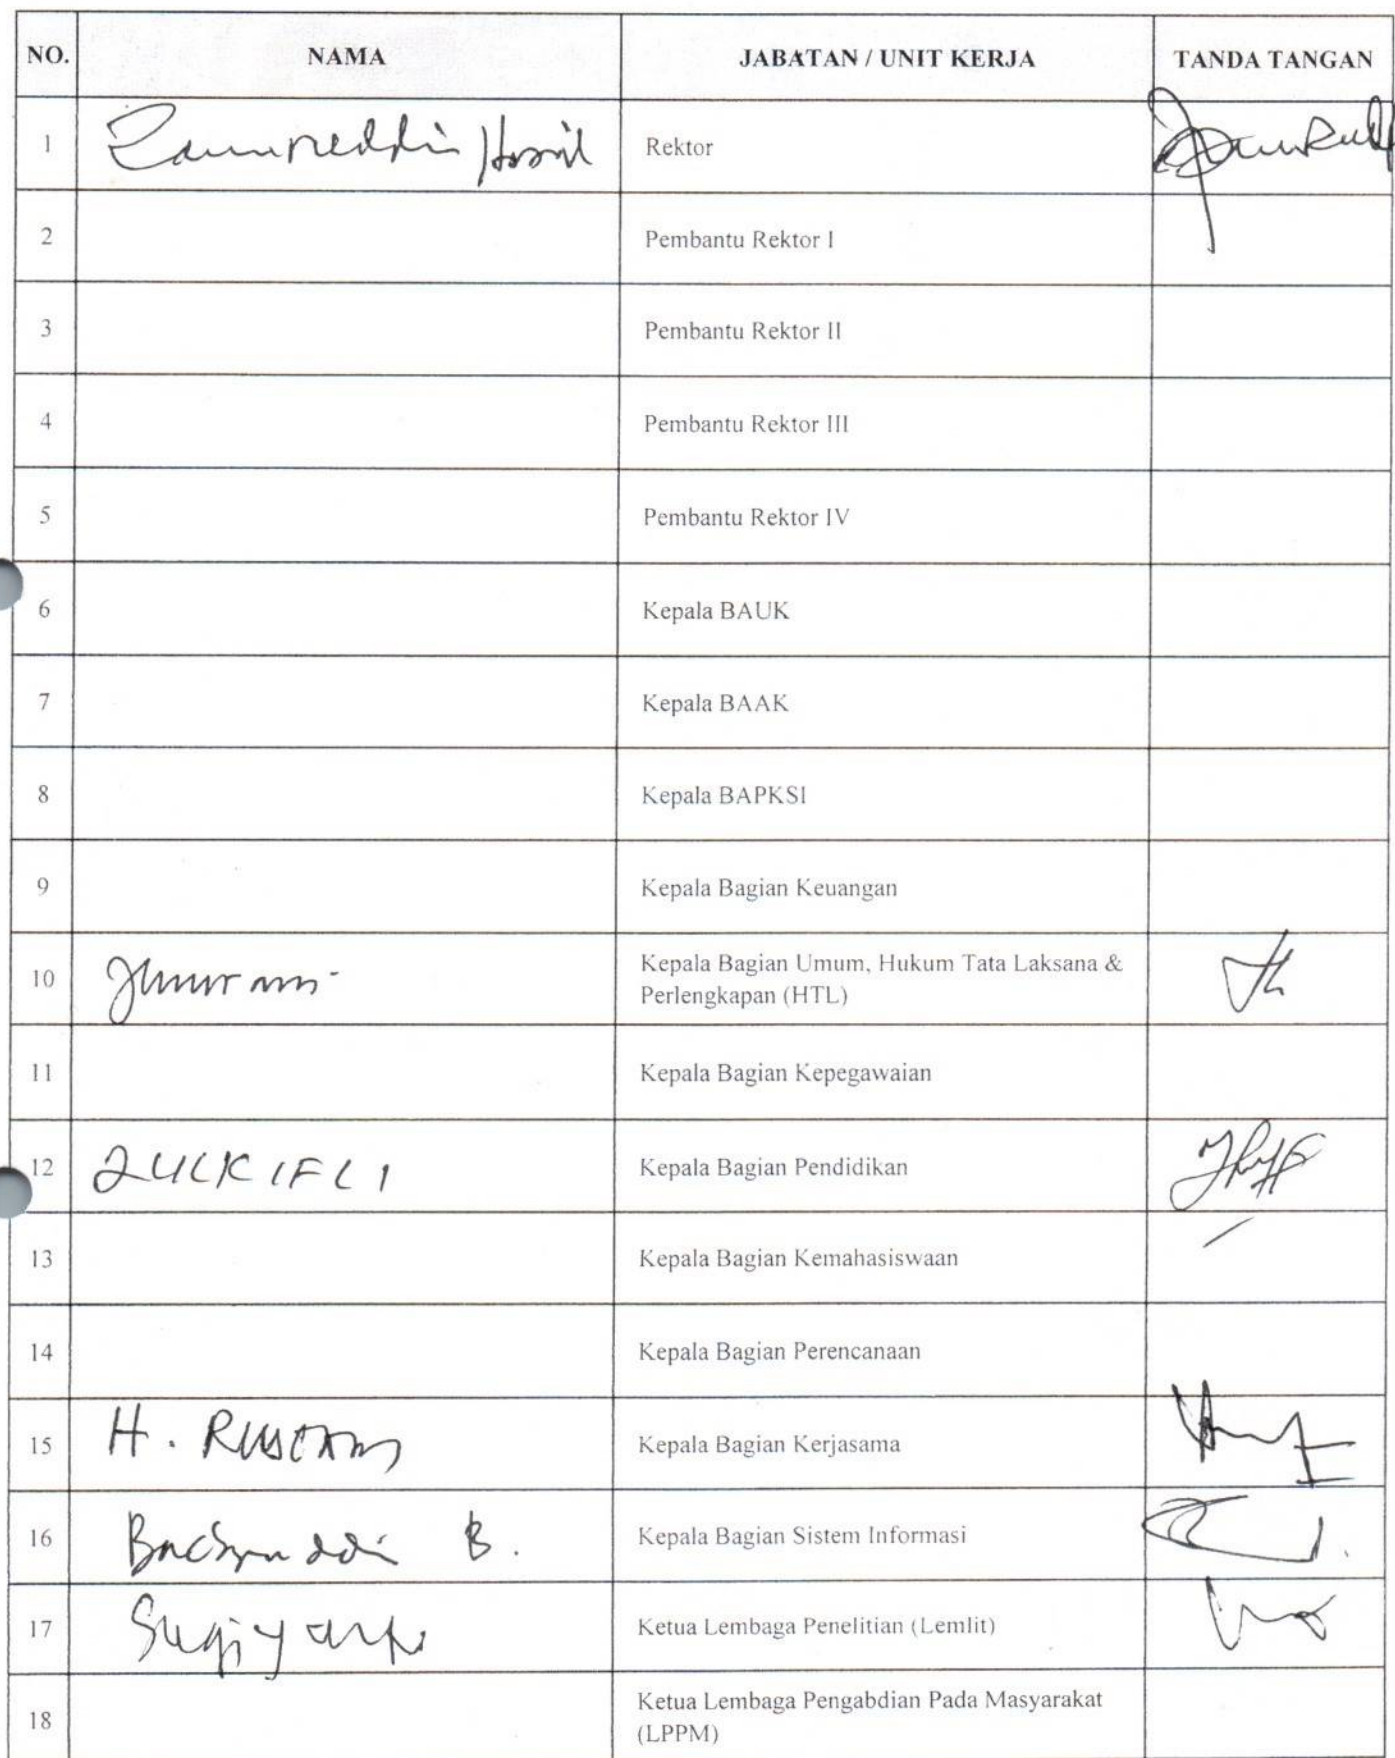 NO. NAMA JABATAN / UNIT KERJA TANDA TANGAN
1 Rektor
2 Pembantu Rektor I
3 Pembantu Rektor II
4 Pembantu Rektor III
5 Pembantu Rektor IV
6 Kepala BAUK
7 Kepala BAAK
8 Kepala BAPKSI
9 Kepala Bagian Keuangan
10 Kepala Bagian Umum, Hukum Tata Laksana &
Perlengkapan (HTL)
11 Kepala Bagian Kepegawaian
12 ZULKIFLI Kepala Bagian Pendidikan
13 Kepala Bagian Kemahasiswaan
14 Kepala Bagian Perencanaan
15 H. RUSTAM Kepala Bagian Kerjasama
16 B. Kepala Bagian Sistem Informasi
17 Sugiyarto Ketua Lembaga Penelitian (Lemlit)
18 Ketua Lembaga Pengabdian Pada Masyarakat
(LPPM)